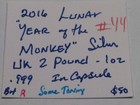 "2016 Lunar #44
"Year of the
Monkey" Silver
UK 2 Pound - 1oz
.999 In Capsule
Box R Some Toning $50